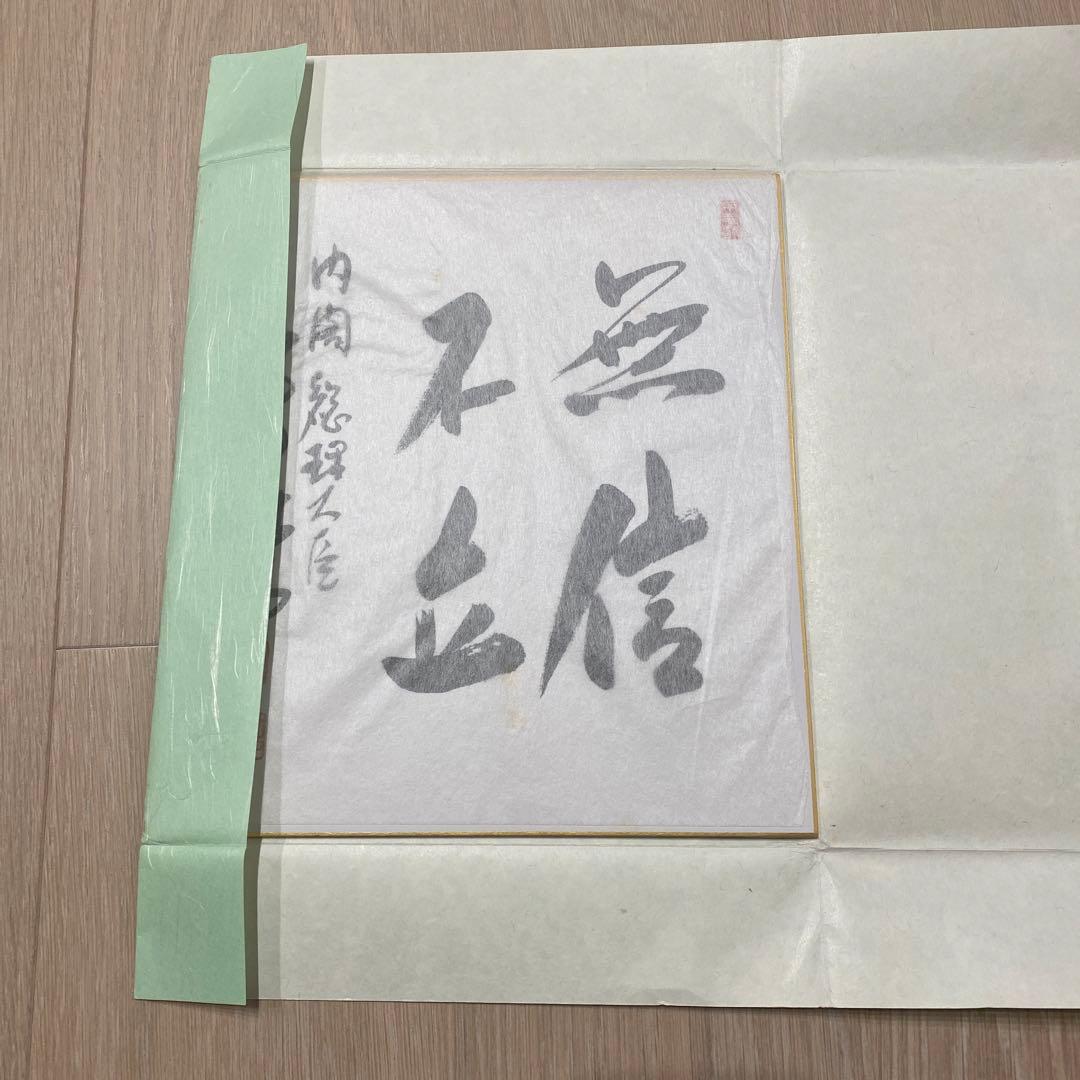 無信
不立
内閣総理大臣